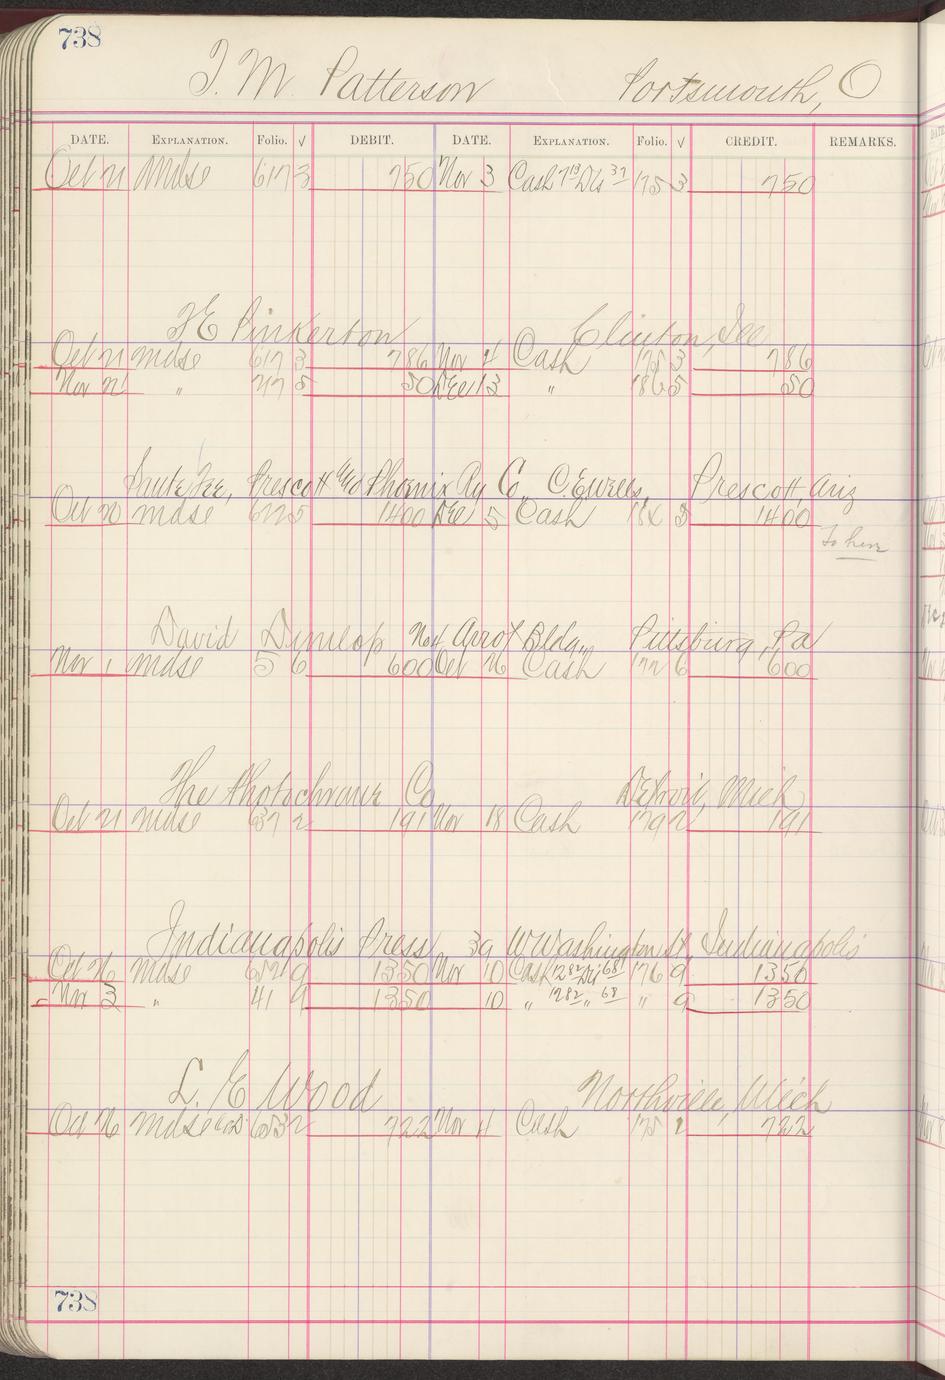 738
T. M. Patterson Portsmouth, O
DATE. EXPLANATION. Folio. √ DEBIT. DATE. EXPLANATION. Folio. √ CREDIT. REMARKS.
Oct 21 Mdse 617 3 750 Nov 3 Cash 7 13 Dis 37 175 3 750
Pinkerton Clinton,
Oct 21 mdse 617 3 786 Nov 4 Cash 175 3 786
Nov 21 " 717 5 50 Dec 13 " 186 5 50
Santa Fe, Prescott and Phoenix Ry Co, C. E. Wells, Prescott, Ariz
Oct 20 mdse 612 5 1400 Dec 5 Cash 5 1400
To here
David Dunlop Arrott Bldg, Pittsburg, Pa
Nov 1 mdse 5 6 600 Oct 26 Cash 172 6 600
The Photochrome Co Detroit, Mich
Oct 21 mdse 637 2 191 Nov 18 Cash 179 2 191
Indianapolis Press, 39 W Washington St, Indianapolis
Oct 26 mdse 652 9 1350 Nov 10 Cash 1282 Dis 68 176 9 1350
Nov 3 " 41 9 1350 10 " 1282 " 68 " 9 1350
L. E. Wood Northville, Mich
Oct 26 mdse 653 2 722 Nov 4 Cash 175 2 722
738